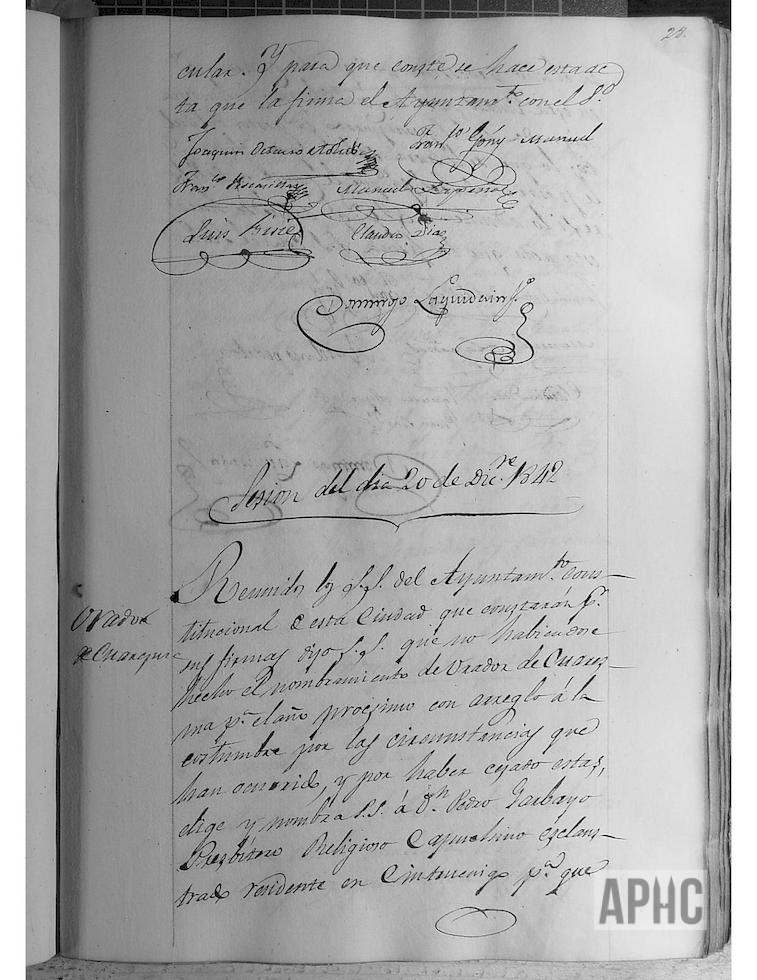 23.
cular. Y para que conste se hace esta ac
ta que la firma el Ayuntam.to con el S.o
Joaquin Octavio de Toledo
Fran.co Goñy Manuel
Fran.co
Manuel Español
Luis
Claudio Diaz
Domingo
Sesion del dia 20 de Dic.re 1842
Orador
de Cuaresma
Reunidos los S.S. del Ayuntam.to cons-
titucional de esta Ciudad que constarán p.r
sus firmas dijo S.S. que no habiendose
hecho el nombramiento de Orador de Cuares-
ma p.a el año procsimo con arreglo á la
costumbre por las circunstancias que
han ocurrido, y por haber cesado estas,
elige y nombra S.S. á D.n Pedro Garbayo
Presbitero Religioso Capuchino esclaus-
trado residente en Cintruenigo p.a que
APHC